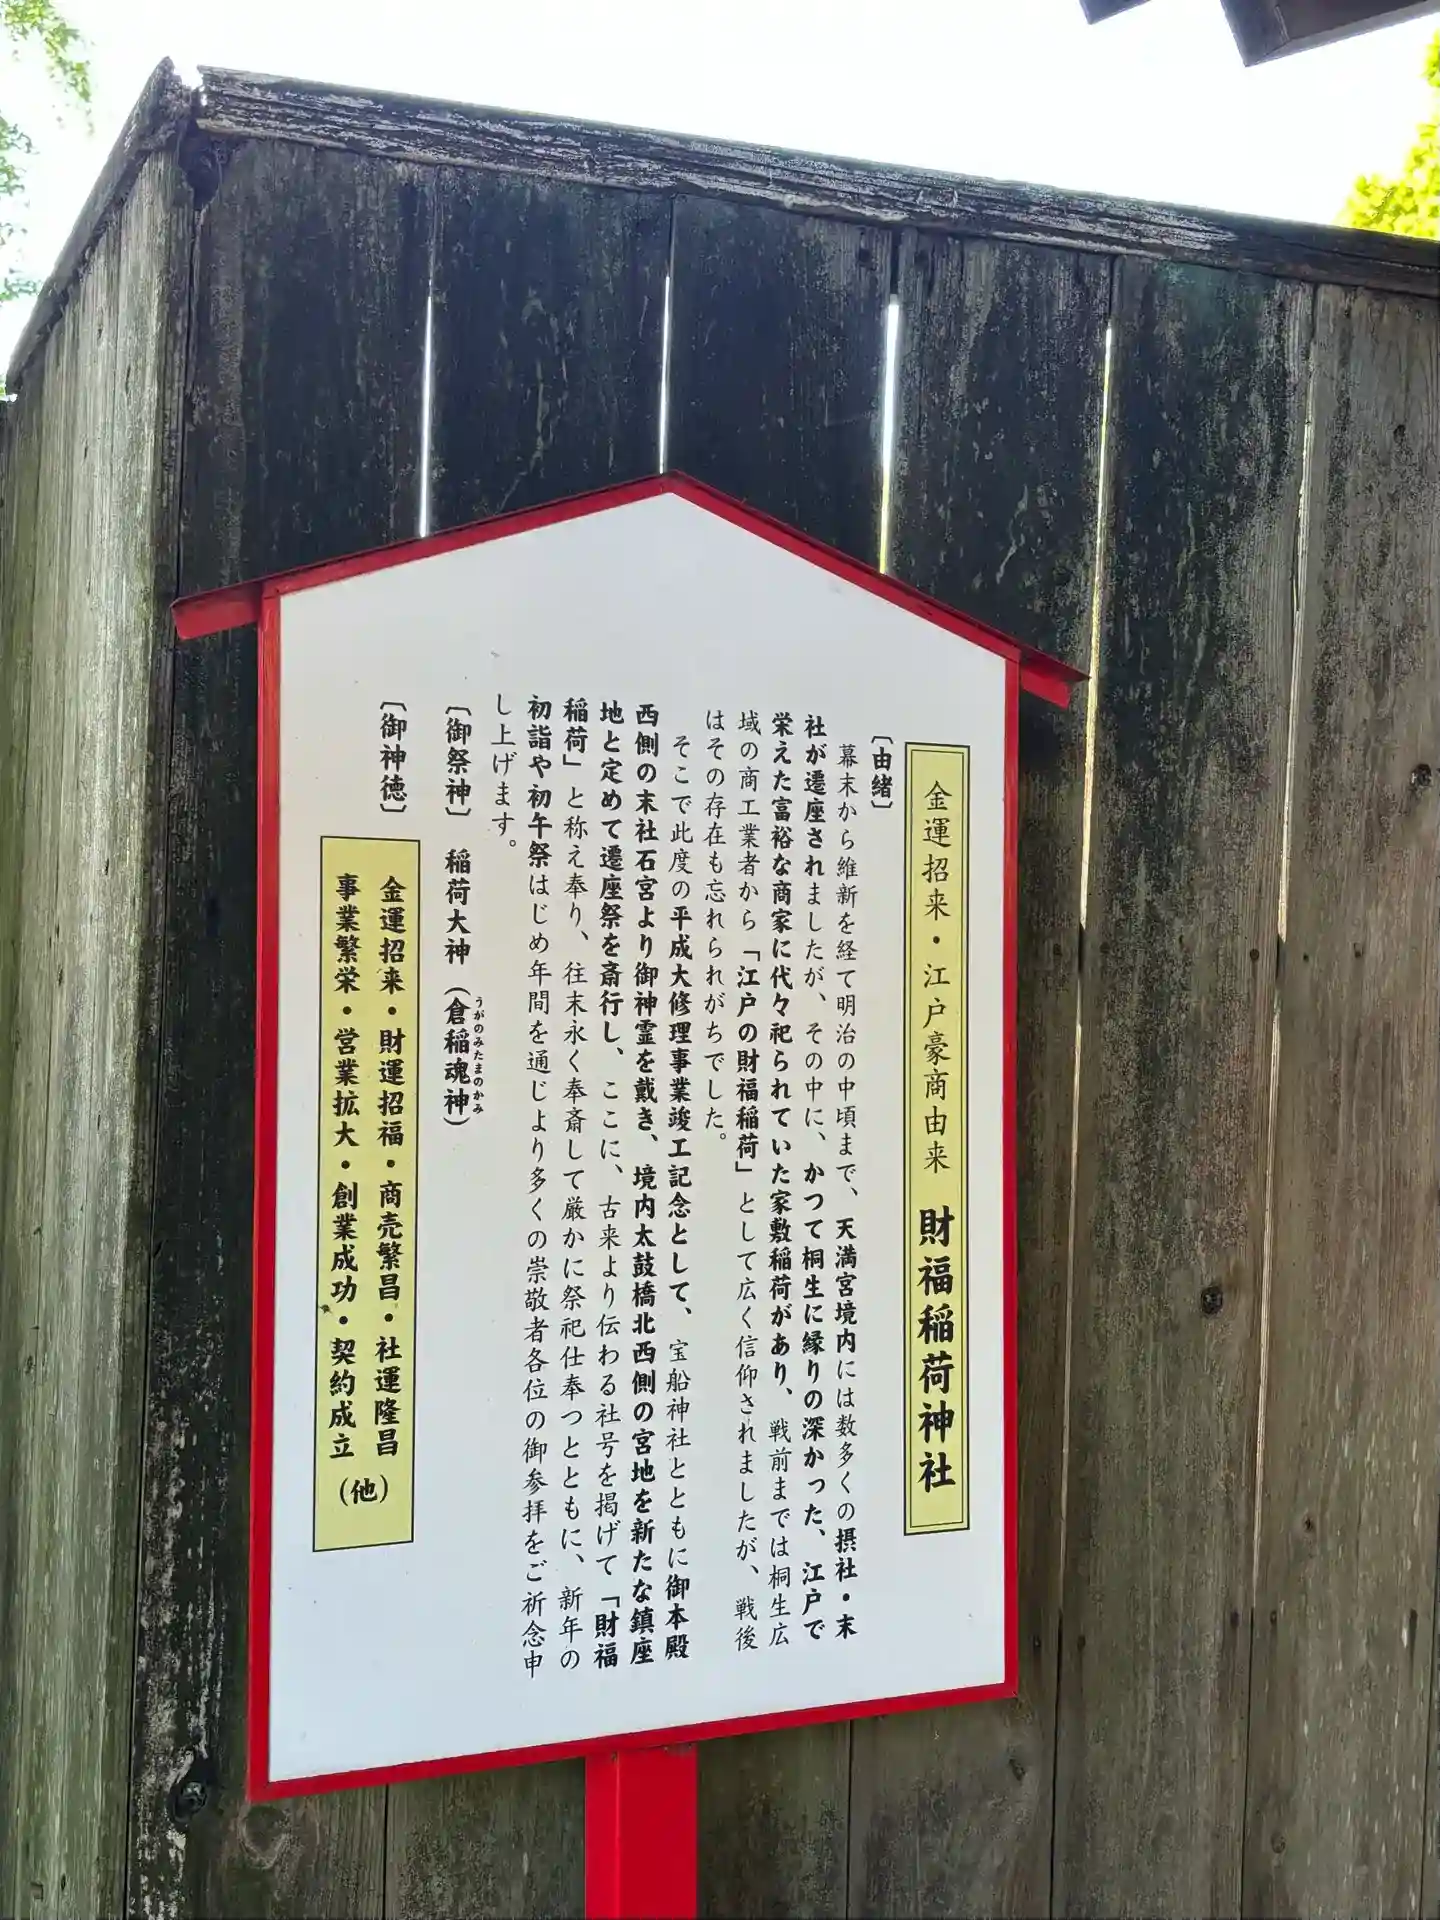 金運招来・江戸豪商由来 財福稲荷神社
〔由緒〕
幕末から維新を経て明治の中頃まで、天満宮境内には数多くの摂社・末
社が遷座されましたが、その中に、かつて桐生に縁りの深かった、江戸で
栄えた富裕な商家に代々祀られていた家敷稲荷があり、戦前までは桐生広
域の商工業者から「江戸の財福稲荷」として広く信仰されましたが、戦後
はその存在も忘れられがちでした。
そこで此度の平成大修理事業竣工記念として、宝船神社とともに御本殿
西側の末社石宮より御神霊を戴き、境内太鼓橋北西側の宮地を新たな鎮座
地と定めて遷座祭を斎行し、ここに、古来より伝わる社号を掲げて「財福
稲荷」と称え奉り、往末永く奉斎して厳かに祭祀仕奉つとともに、新年の
初詣や初午祭はじめ年間を通じより多くの崇敬者各位の御参拝をご祈念申
し上げます。
〔御祭神〕 稲荷大神（倉稲魂神）
うがのみたまのかみ
〔御神徳〕
金運招来・財運招福・商売繁昌・社運隆昌
事業繁栄・営業拡大・創業成功・契約成立
（他）